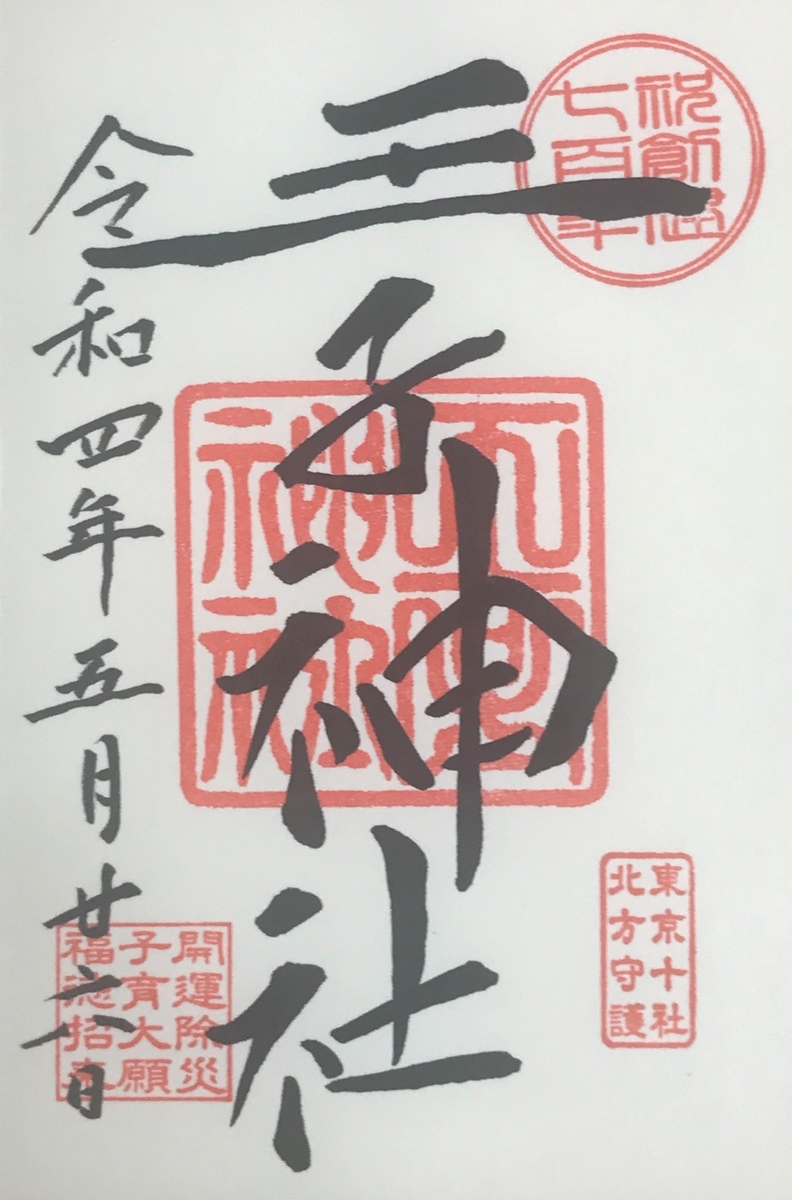 祝創建
七百年
王子神社
王子神社
東京十社
北方守護
令和四年五月廿六日
開運除災
子育大願
福徳招来